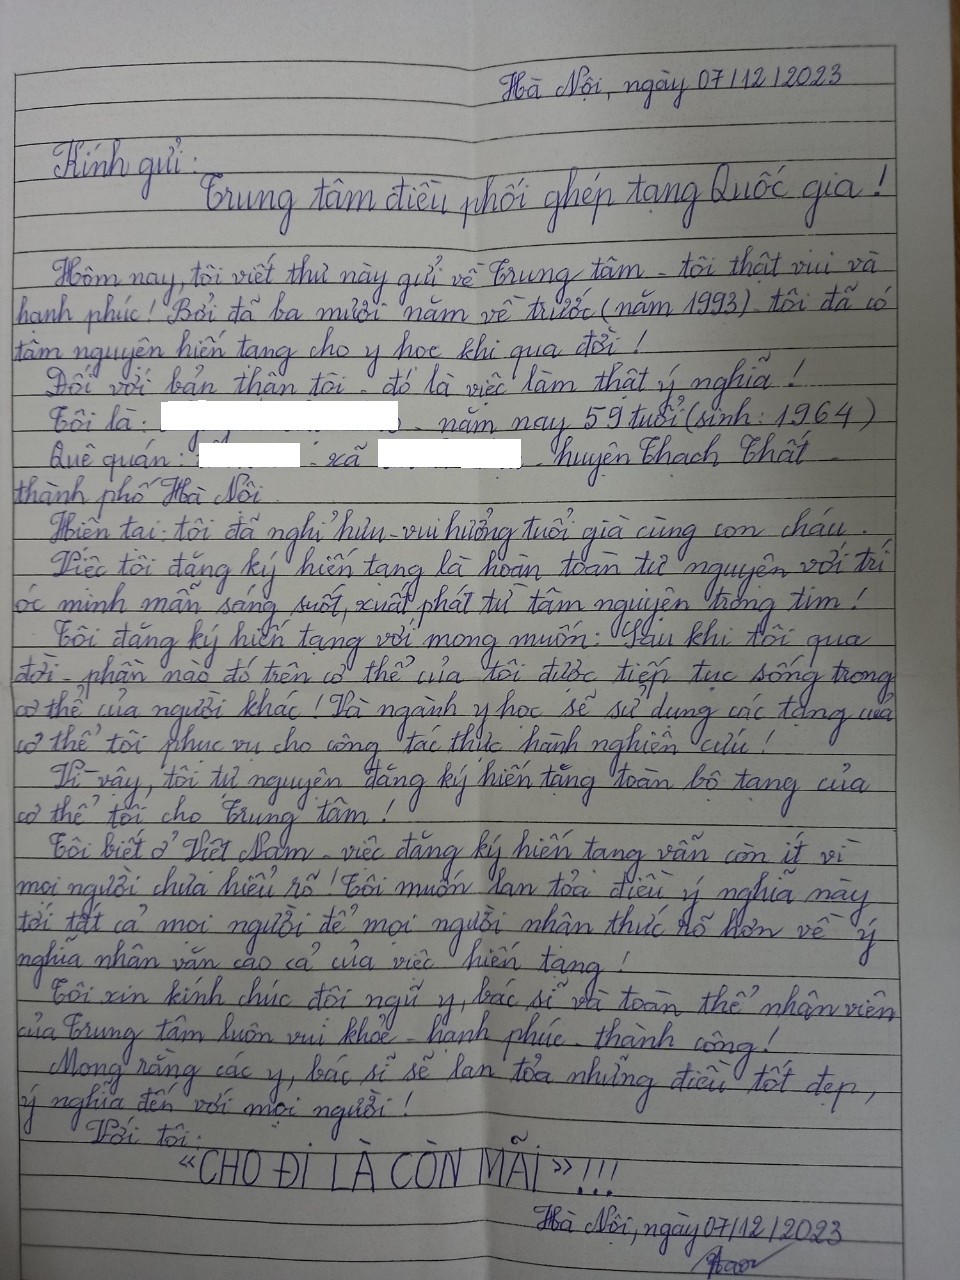 Hà Nội, ngày 07/12/2023
Kính gửi:
Trung tâm điều phối ghép tạng Quốc gia!
Hôm nay, tôi viết thư này gửi về Trung tâm - tôi thật vui và
hạnh phúc! Bởi đã ba mươi năm về trước (năm 1993) - tôi đã có
tâm nguyện hiến tạng cho y học khi qua đời!
Đối với bản thân tôi - đó là việc làm thật ý nghĩa!
Tôi là: - năm nay 59 tuổi (sinh: 1964)
Quê quán: - xã - huyện Thạch Thất -
thành phố Hà Nội.
Hiện tại: tôi đã nghỉ hưu - vui hưởng tuổi già cùng con cháu.
Việc tôi đăng ký hiến tạng là hoàn toàn tự nguyện với trí
óc minh mẫn sáng suốt, xuất phát từ tâm nguyện trong tim!
Tôi đăng ký hiến tạng với mong muốn: Sau khi tôi qua
đời - phần nào đó trên cơ thể của tôi được tiếp tục sống trong
cơ thể của người khác! Và ngành y học sẽ sử dụng các tạng của
cơ thể tôi phục vụ cho công tác thực hành nghiên cứu!
Vì vậy, tôi tự nguyện đăng ký hiến tặng toàn bộ tạng của
cơ thể tôi cho Trung tâm!
Tôi biết ở Việt Nam - việc đăng ký hiến tạng vẫn còn ít vì
mọi người chưa hiểu rõ! Tôi muốn lan tỏa điều ý nghĩa này
tới tất cả mọi người để mọi người nhận thức rõ hơn về ý
nghĩa nhân văn cao cả của việc hiến tạng!
Tôi xin kính chúc đội ngũ y, bác sĩ và toàn thể nhân viên
của Trung tâm luôn vui khỏe - hạnh phúc - thành công!
Mong rằng các y, bác sĩ sẽ lan tỏa những điều tốt đẹp,
ý nghĩa đến với mọi người!
Với tôi:
"CHO ĐI LÀ CÒN MÃI"!!!
Hà Nội, ngày 07/12/2023